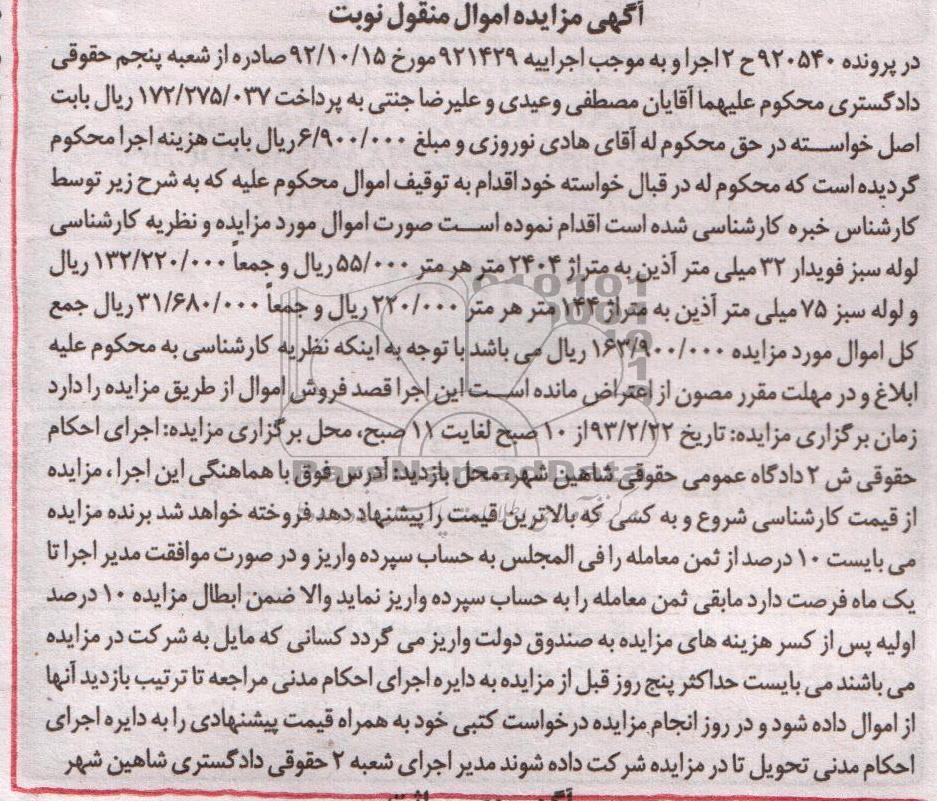 آگهی مزایده اموال منقول نوبت
در پرونده ۹۲۰۵۴۰ ح ۲ اجرا و به موجب اجراییه ۹۲۱۴۲۹ مورخ ۹۲/۱۰/۱۵ صادره از شعبه پنجم حقوقی
دادگستری محکوم علیهما آقایان مصطفی وعیدی و علیرضا جنتی به پرداخت ۱۷۲/۲۷۵/۰۳۷ ریال بابت
اصل خواسته در حق محکوم له آقای هادی نوروزی و مبلغ ۶/۹۰۰/۰۰۰ ریال بابت هزینه اجرا محکوم
گردیده است که محکوم له در قبال خواسته خود اقدام به توقیف اموال محکوم علیه که به شرح زیر توسط
کارشناس خبره کارشناسی شده است اقدام نموده است صورت اموال مورد مزایده و نظریه کارشناسی
لوله سبز فویدار ۳۲ میلی متر آذین به متراژ ۲۴۰۴ متر هر متر ۵۵/۰۰۰ ریال و جمعاً ۱۳۲/۲۲۰/۰۰۰ ریال
و لوله سبز ۷۵ میلی متر آذین به متراژ ۱۴۴ متر هر متر ۲۲۰/۰۰۰ ریال و جمعاً ۳۱/۶۸۰/۰۰۰ ریال جمع
کل اموال مورد مزایده ۱۶۳/۹۰۰/۰۰۰ ریال می باشد با توجه به اینکه نظریه کارشناسی به محکوم علیه
ابلاغ و در مهلت مقرر مصون از اعتراض مانده است این اجرا قصد فروش اموال از طریق مزایده را دارد
زمان برگزاری مزایده: تاریخ ۹۳/۲/۲۲ از ۱۰ صبح لغایت ۱۱ صبح، محل برگزاری مزایده: اجرای احکام
حقوقی ش ۲ دادگاه عمومی حقوقی شاهین شهر، محل بازدید: آدرس فوق با هماهنگی این اجرا، مزایده
از قیمت کارشناسی شروع و به کسی که بالاترین قیمت را پیشنهاد دهد فروخته خواهد شد برنده مزایده
می بایست ۱۰ درصد از ثمن معامله را فی المجلس به حساب سپرده واریز و در صورت موافقت مدیر اجرا تا
یک ماه فرصت دارد مابقی ثمن معامله را به حساب سپرده واریز نماید والا ضمن ابطال مزایده ۱۰ درصد
اولیه پس از کسر هزینه های مزایده به صندوق دولت واریز می گردد کسانی که مایل به شرکت در مزایده
می باشند می بایست حداکثر پنج روز قبل از مزایده به دایره اجرای احکام مدنی مراجعه تا ترتیب بازدید آنها
از اموال داده شود و در روز انجام مزایده درخواست کتبی خود به همراه قیمت پیشنهادی را به دایره اجرای
احکام مدنی تحویل تا در مزایده شرکت داده شوند مدیر اجرای شعبه ۲ حقوقی دادگستری شاهین شهر